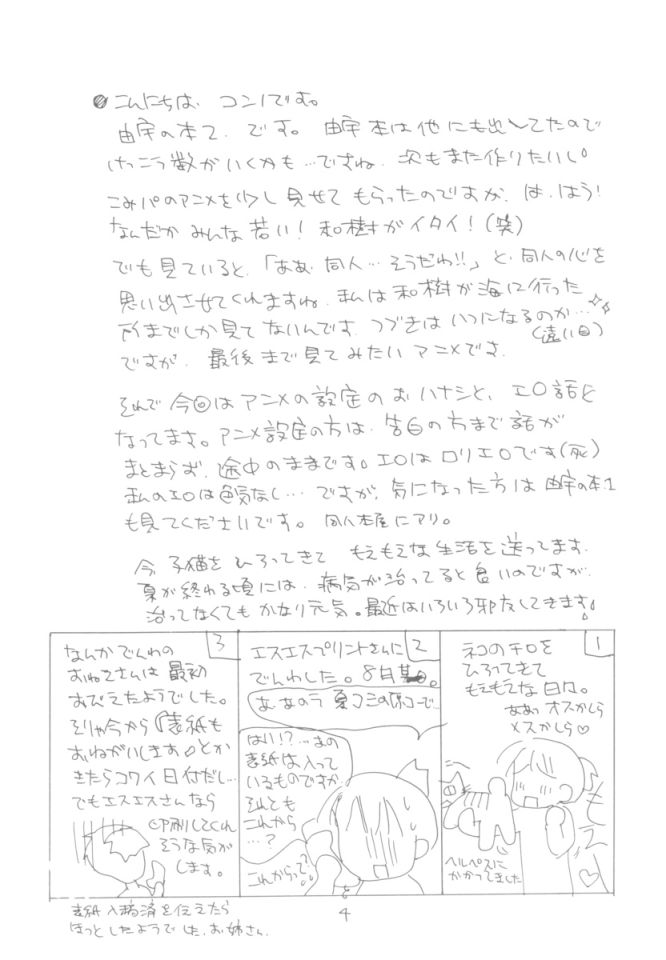 こんにちは、コン1です。
由宇の本2、です。由宇本は他にも出してたので
けっこう数がいくかも…ですね、次もまた作りたいし。
こみパのアニメを少し見せてもらったのですが、は、はう!
なんだかみんな若い!和樹がイタイ!(笑)
でも見ていると、「ああ、同人…そうだわ!!」と、同人の心を
思い出させてくれますね、私は和樹が海に行った
所までしか見てないんです、つづきはいつになるのか…
(遠い目)
ですが、最後まで見てみたいアニメです。
それで今回はアニメの設定のおハナシと、エロ話と
なってます。アニメ設定の方は、告白の方まで話が
まとまらず、途中のままです。エロはロリエロです(死)
私のエロは色気なし…ですが、気になった方は由宇の本1
も見てくださいです。同人本屋にアリ。
今子猫をひろってきてもえもえな生活を送ってます。
夏が終わる頃には、病気が治ってると良いのですが、
治ってなくてもかなり元気。最近はいろいろ邪友してきます!
1
ネコのチロを
ひろってきて
もえもえな日々。
ああっオスかしら
メスかしら♡
もえ
ヘルペスに
かかってました
2
エスエスプリントさんに
でんわした。8日
あ、あのう夏コミの原コーで…
はい!?…あの
表紙は入って
いるものですが
それとも
これから
…?
これからって?
3
なんかでんわの
おねえさんは最初
おびえたようでした。
そりゃ今から『表紙も
おねがいします』とか
きたらコワイ日付だし…
でもエスエスさんなら
印刷してくれ
そうな気が
します。
表紙入稿済を伝えたら
ほっとしたようでした、お姉さん。
4